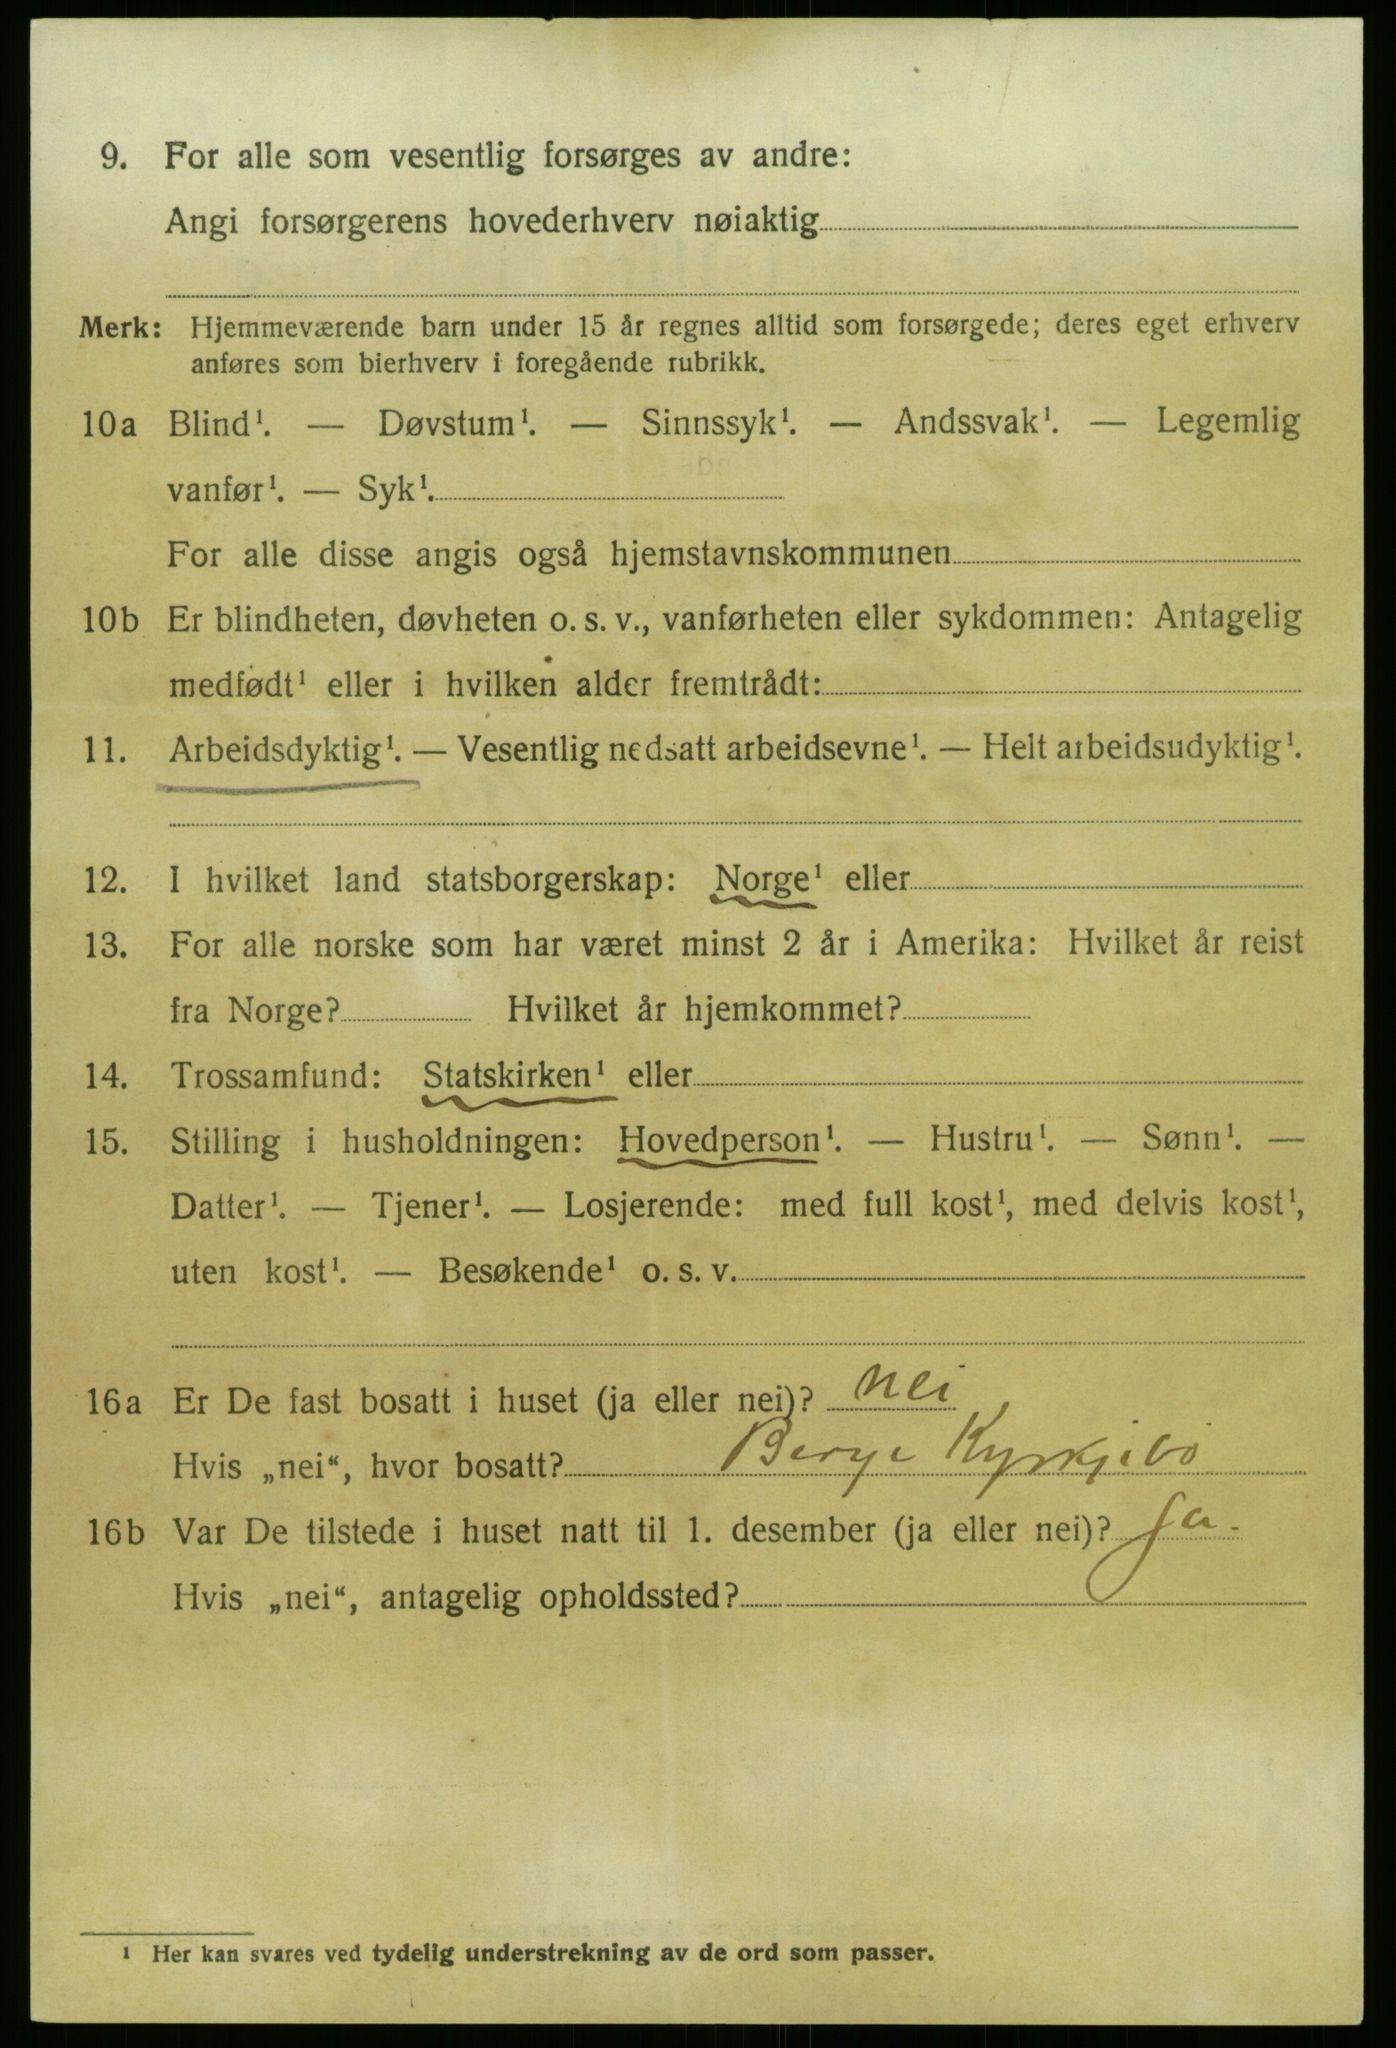 9. For alle som vesentlig forsørges av andre:
Angi forsørgerens hovederhverv nøiaktig
Merk: Hjemmeværende barn under 15 år regnes alltid som forsørgede; deres eget erhverv
anføres som bierhverv i foregående rubrikk.
10a Blind¹. — Døvstum¹. — Sinnssyk¹. — Andssvak¹. — Legemlig
vanfør¹. — Syk¹.
For alle disse angis også hjemstavnskommunen
10b Er blindheten, døvheten o. s. v., vanførheten eller sykdommen: Antagelig
medfødt¹ eller i hvilken alder fremtrådt:
11. Arbeidsdyktig¹. — Vesentlig nedsatt arbeidsevne¹. — Helt arbeidsudyktig¹.
12. I hvilket land statsborgerskap: Norge¹ eller
13. For alle norske som har været minst 2 år i Amerika: Hvilket år reist
fra Norge? Hvilket år hjemkommet?
14. Trossamfund: Statskirken¹ eller
15. Stilling i husholdningen: Hovedperson¹. — Hustru¹. — Sønn¹. —
Datter¹. — Tjener¹. — Losjerende: med full kost¹, med delvis kost¹,
uten kost¹. — Besøkende¹ o. s. v.
16a Er De fast bosatt i huset (ja eller nei)? nei
Hvis „nei“, hvor bosatt? Berge Kyrkjebö
16b Var De tilstede i huset natt til 1. desember (ja eller nei)? Ja.
Hvis „nei“, antagelig opholdssted?
¹ Her kan svares ved tydelig understrekning av de ord som passer.